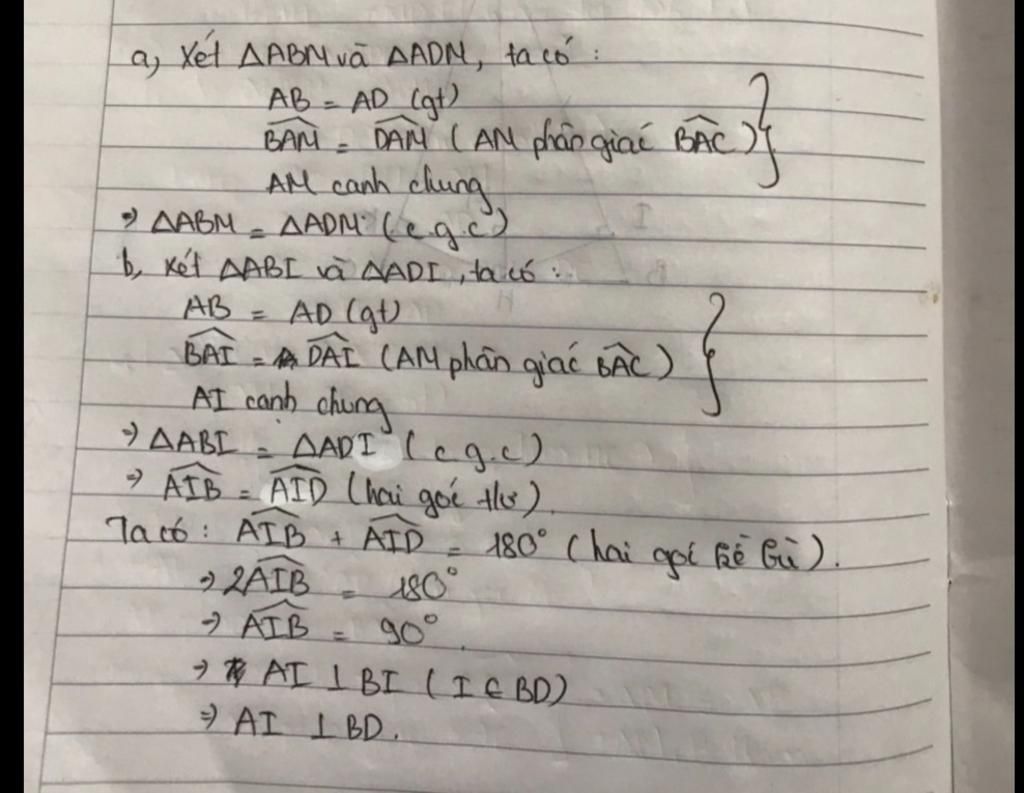 a, Xét ΔABM và ΔADM, ta có :
AB = AD (gt)
\widehat{BAM} = \widehat{DAM} ( AM phân giác \widehat{BAC} ) }
AM cạnh chung
⇒ ΔABM = ΔADM (c.g.c)
b, Xét ΔABI và ΔADI, ta có :
AB = AD (gt)
\widehat{BAI} = \widehat{DAI} (AM phân giác \widehat{BAC} ) }
AI cạnh chung
⇒ ΔABI = ΔADI (c.g.c)
⇒ \widehat{AIB} = \widehat{AID} (hai góc t/ư).
Ta có : \widehat{AIB} + \widehat{AID} = 180° (hai góc kề bù).
⇒ 2\widehat{AIB} = 180°
⇒ \widehat{AIB} = 90°.
⇒ AI ⊥ BI ( I ∈ BD)
⇒ AI ⊥ BD.